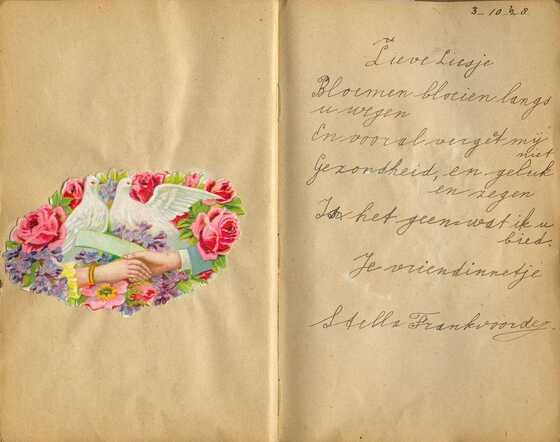 3-10-28
Lieve Liesje
Bloemen bloeien langs
u wegen
En vooral verget mij
niet
Gezondheid, en geluk
en zegen
Is het geen wat ik u
bied.
Je vriendinnetje
Stella Frankvoorder